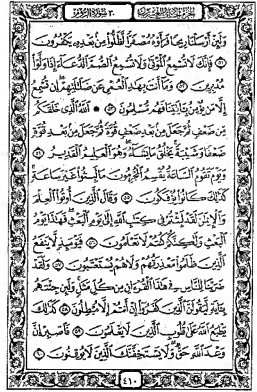 ٣٠ سورة الروم
وَلَئِنْ أَرْسَلْنَا رِيحًا فَرَأَوْهُ مُصْفَرًّا لَّظَلُّوا مِنۢ بَعْدِهِۦ يَكْفُرُونَ
٥١ فَإِنَّكَ لَا تُسْمِعُ الْمَوْتَىٰ وَلَا تُسْمِعُ الصُّمَّ الدُّعَآءَ إِذَا وَلَّوْا
مُدْبِرِينَ ٥٢ وَمَآ أَنتَ بِهَٰدِ الْعُمْىِ عَن ضَلَٰلَتِهِمْ إِن تُسْمِعُ
إِلَّا مَن يُؤْمِنُ بِـَٔايَٰتِنَا فَهُم مُّسْلِمُونَ ٥٣ ۞ اللَّهُ الَّذِى خَلَقَكُم
مِّن ضَعْفٍ ثُمَّ جَعَلَ مِنۢ بَعْدِ ضَعْفٍ قُوَّةً ثُمَّ جَعَلَ مِنۢ بَعْدِ قُوَّةٍ
ضَعْفًا وَشَيْبَةً يَخْلُقُ مَا يَشَآءُ وَهُوَ الْعَلِيمُ الْقَدِيرُ ٥٤
وَيَوْمَ تَقُومُ السَّاعَةُ يُقْسِمُ الْمُجْرِمُونَ مَا لَبِثُوا غَيْرَ سَاعَةٍ
كَذَٰلِكَ كَانُوا يُؤْفَكُونَ ٥٥ وَقَالَ الَّذِينَ أُوتُوا الْعِلْمَ
وَالْإِيمَٰنَ لَقَدْ لَبِثْتُمْ فِى كِتَٰبِ اللَّهِ إِلَىٰ يَوْمِ الْبَعْثِ فَهَٰذَا يَوْمُ
الْبَعْثِ وَلَٰكِنَّكُمْ كُنتُمْ لَا تَعْلَمُونَ ٥٦ فَيَوْمَئِذٍ لَّا يَنفَعُ
الَّذِينَ ظَلَمُوا مَعْذِرَتُهُمْ وَلَا هُمْ يُسْتَعْتَبُونَ ٥٧ وَلَقَدْ
ضَرَبْنَا لِلنَّاسِ فِى هَٰذَا الْقُرْءَانِ مِن كُلِّ مَثَلٍ وَلَئِن جِئْتَهُم
بِـَٔايَةٍ لَّيَقُولَنَّ الَّذِينَ كَفَرُوا إِنْ أَنتُمْ إِلَّا مُبْطِلُونَ ٥٨ كَذَٰلِكَ
يَطْبَعُ اللَّهُ عَلَىٰ قُلُوبِ الَّذِينَ لَا يَعْلَمُونَ ٥٩ فَاصْبِرْ إِنَّ
وَعْدَ اللَّهِ حَقٌّ وَلَا يَسْتَخِفَّنَّكَ الَّذِينَ لَا يُوقِنُونَ ٦٠
٤١٠